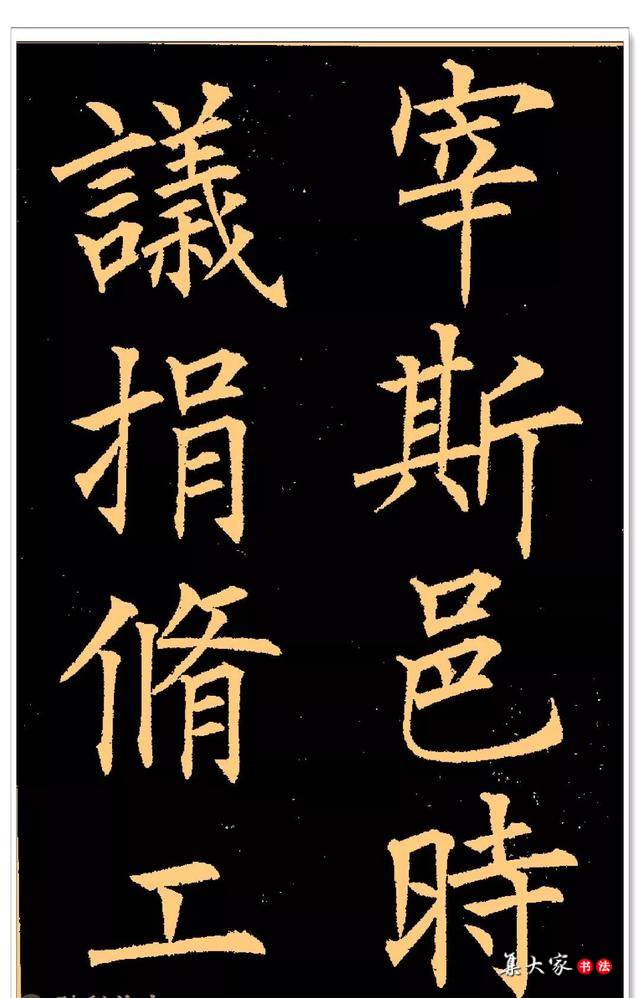 宰斯邑時
議捐脩工
集大家书法